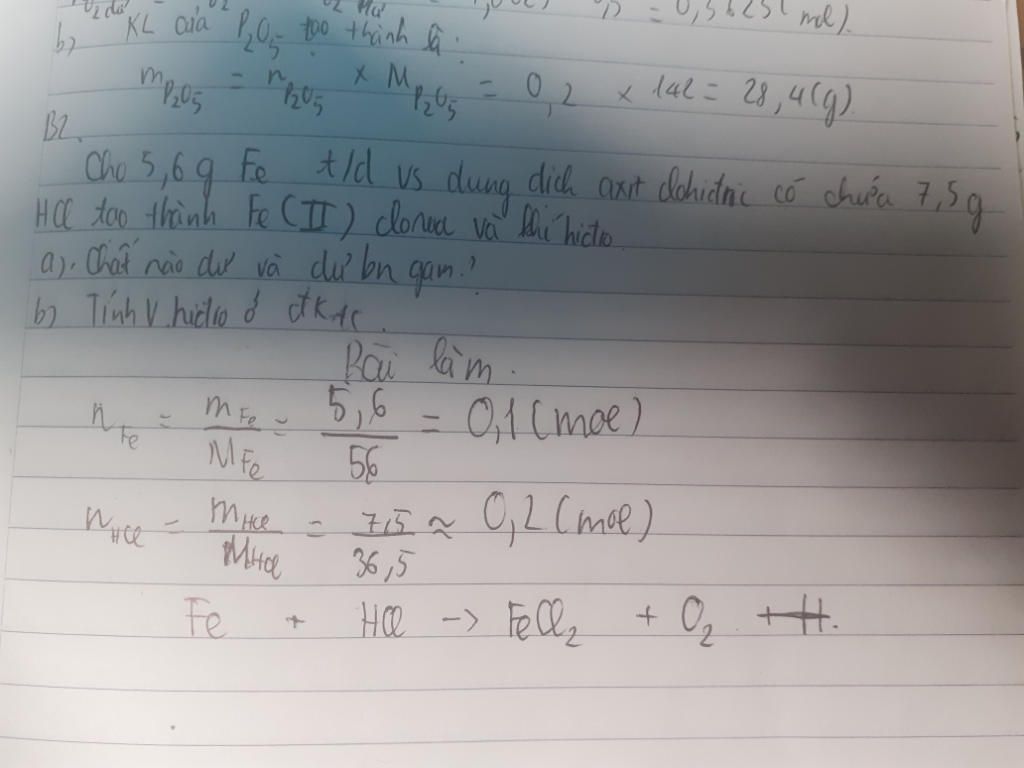 = 0,5625 (mol).
b) KL của P2O5 tạo thành là:
mP2O5 = nP2O5 × MP2O5 = 0,2 × 142 = 28,4(g).
B2.
Cho 5,6 g Fe t/d vs dung dịch axit clohiđric có chứa 7,5 g
HCl tạo thành Fe (II) clorua và khí hiđro
a). Chất nào dư và dư bn gam?
b) Tính V hiđro ở đktc.
Bài làm.
nFe = mFe/MFe = 5,6/56 = 0,1 (mol)
nHCl = mHCl/MHCl = 7,5/36,5 ≈ 0,2 (mol)
Fe + HCl -> FeCl2 + O2